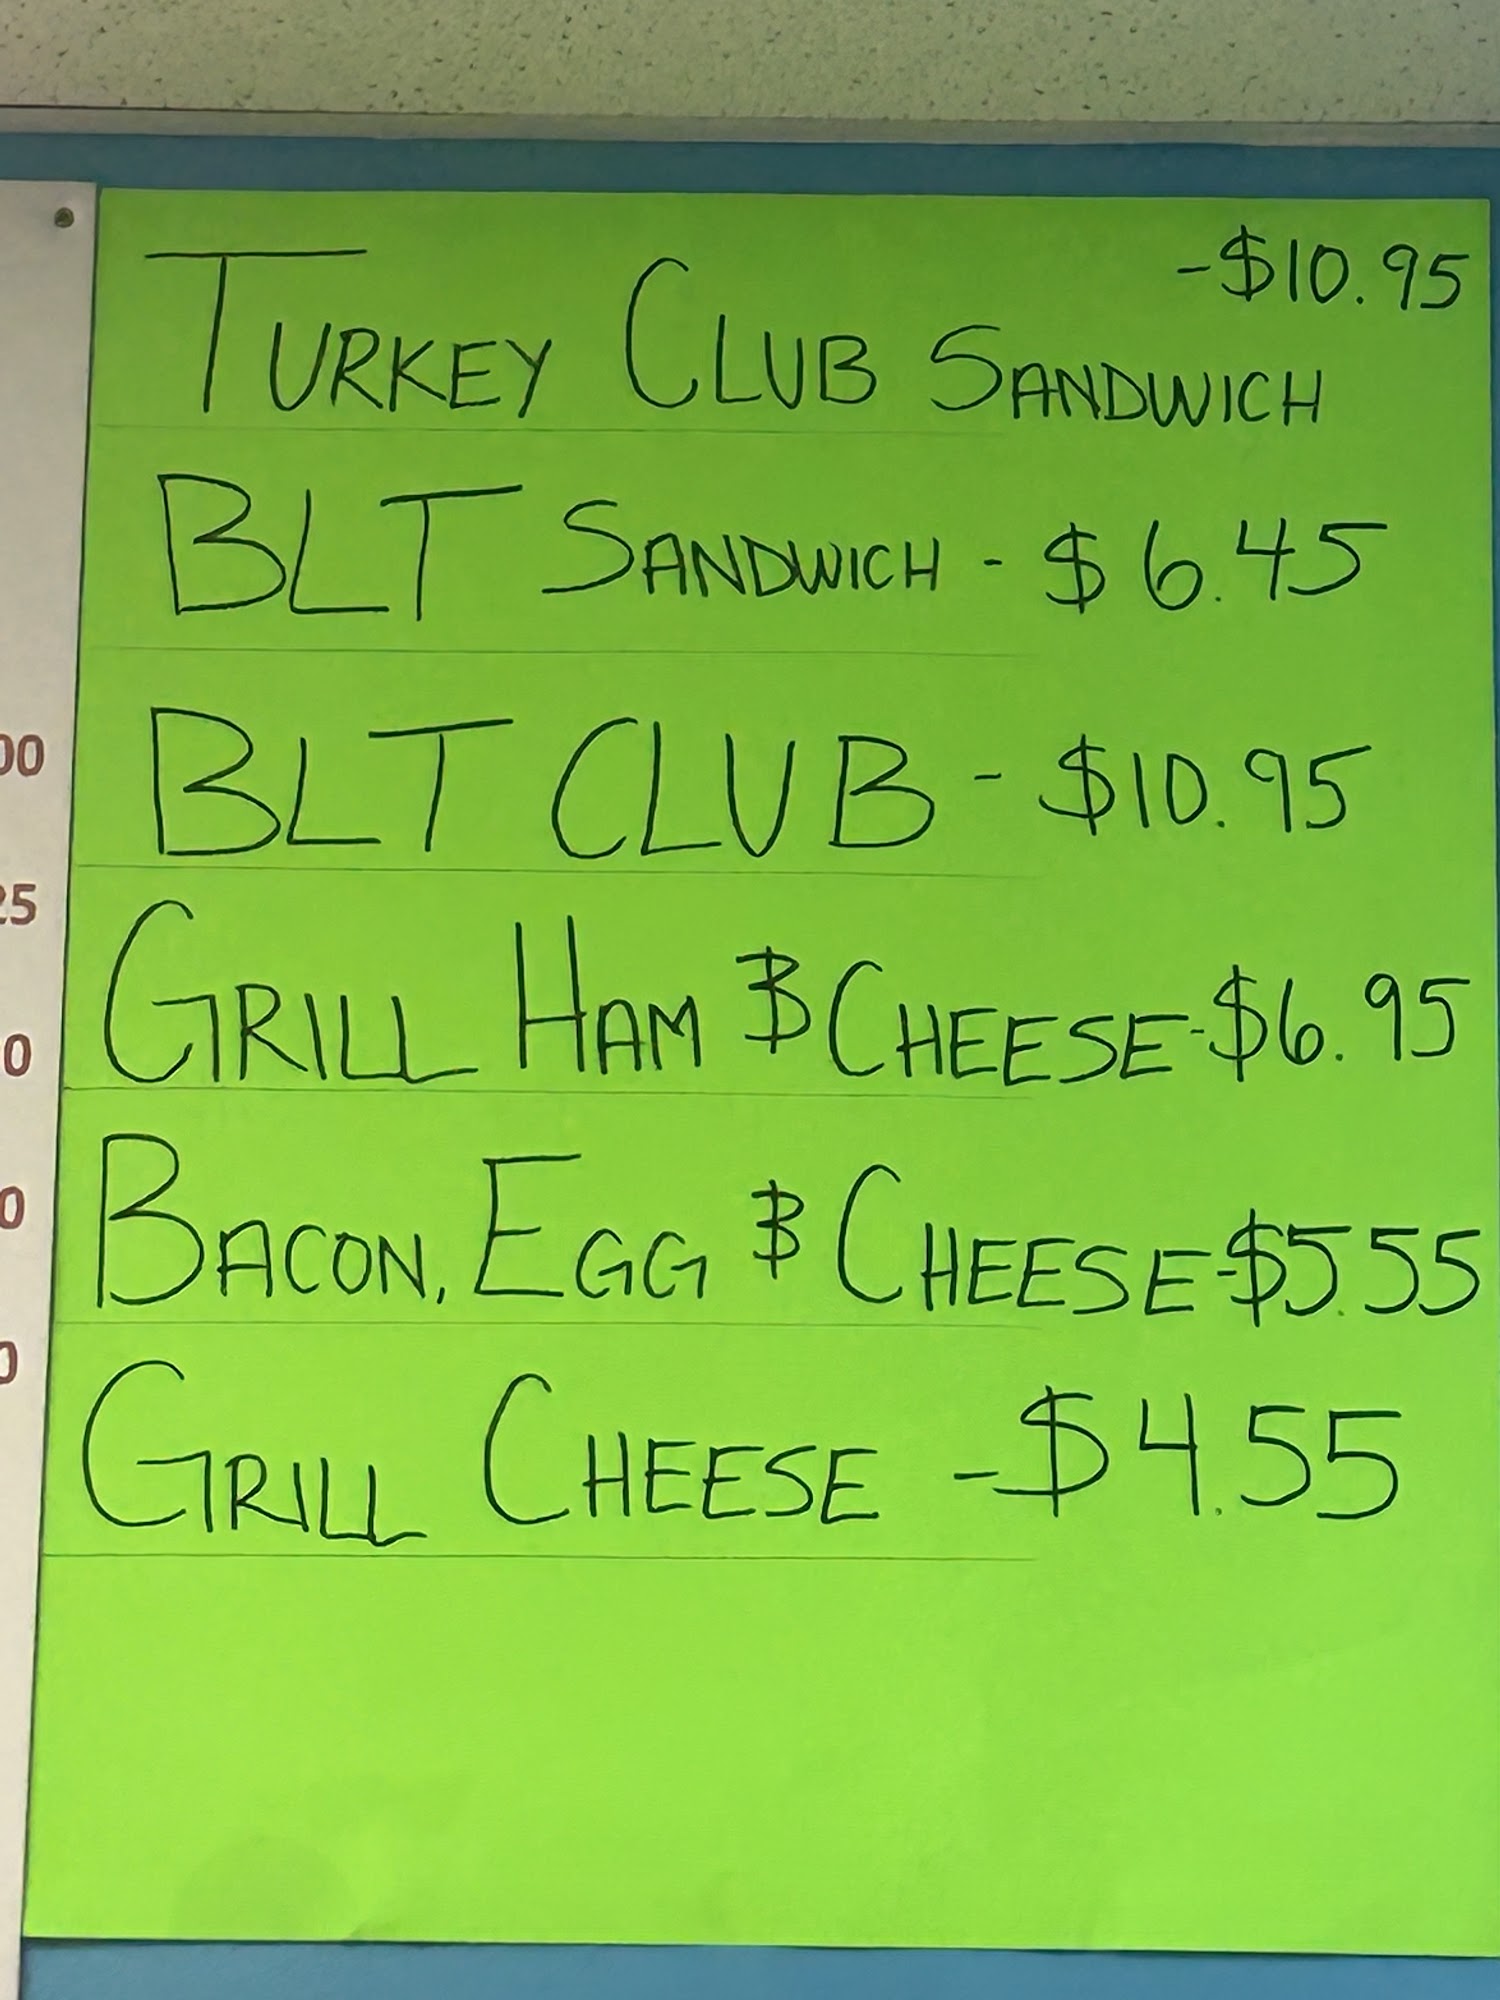 -$10.95
TURKEY CLUB SANDWICH
BLT SANDWICH - $6.45
BLT CLUB - $10.95
GRILL HAM & CHEESE-$6.95
BACON, EGG & CHEESE-$5.55
GRILL CHEESE -$4.55
00
25
0
0
0